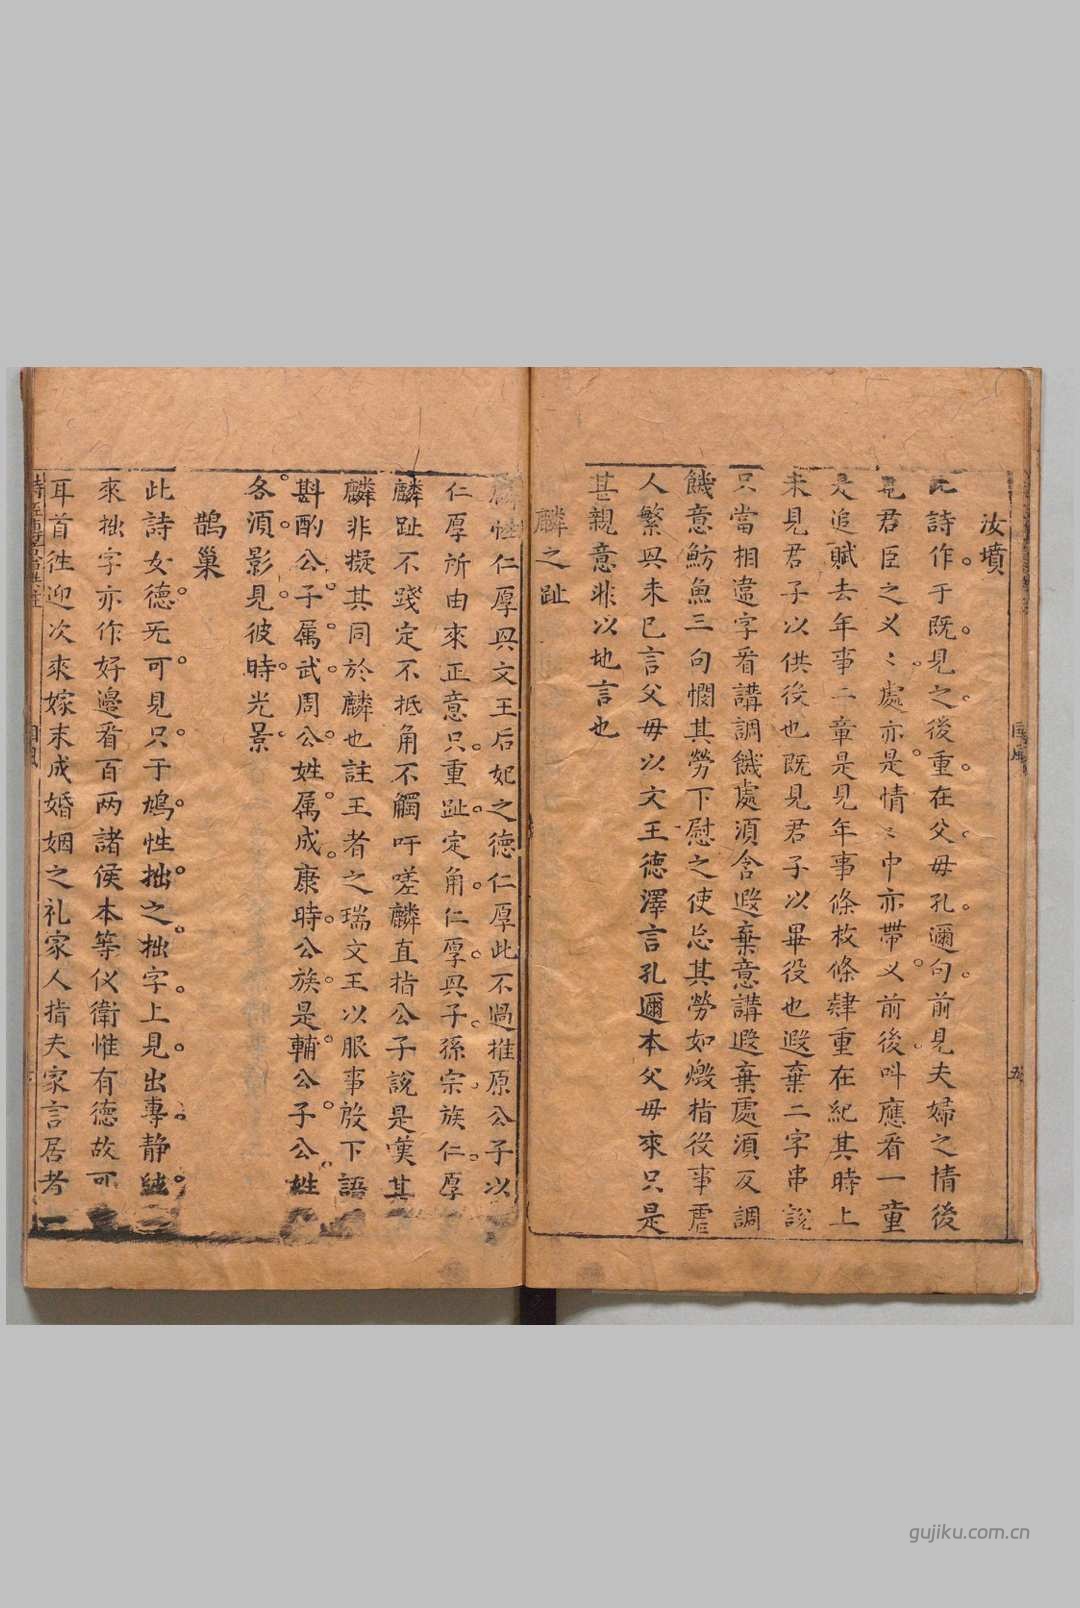 汝墳
此詩作于既見之後重在父母孔邇句前見夫婦之情後
見君臣之义〻處亦是情〻中亦帶义前後叫應看一章
是追賦去年事二章是見年事條枚條肄重在紀其時上
未見君子以供役也既見君子以畢役也遐棄二字串說
只當相違字看講調饑處須含遐棄意講遐棄處須反調
饑意魴魚三句憫其勞下慰之使忘其勞如燬指役事虐
人繁與未已言父母以文王德澤言孔邇本父母來只是
甚親意非以地言也
麟之趾
麟性仁厚與文王后妃之德仁厚此不過推原公子以
仁厚所由來正意只重趾定角仁厚與子孫宗族仁厚
麟趾不踐定不抵角不觸吁嗟麟直指公子說是嘆其
麟非擬其同於麟也註王者之瑞文王以服事殷下語
斟酌公子属武周公姓属成康時公族是輔公子公姓
各湏影見彼時光景
鵲巢
此詩女德无可見只于鳩性拙之拙字上見出專静純
來拙字亦作好邊看百两諸侯本等仪衛惟有德故可
耳首徃迎次來嫁末成婚姻之礼家人指夫家言居者
國風
gujiku.com.cn